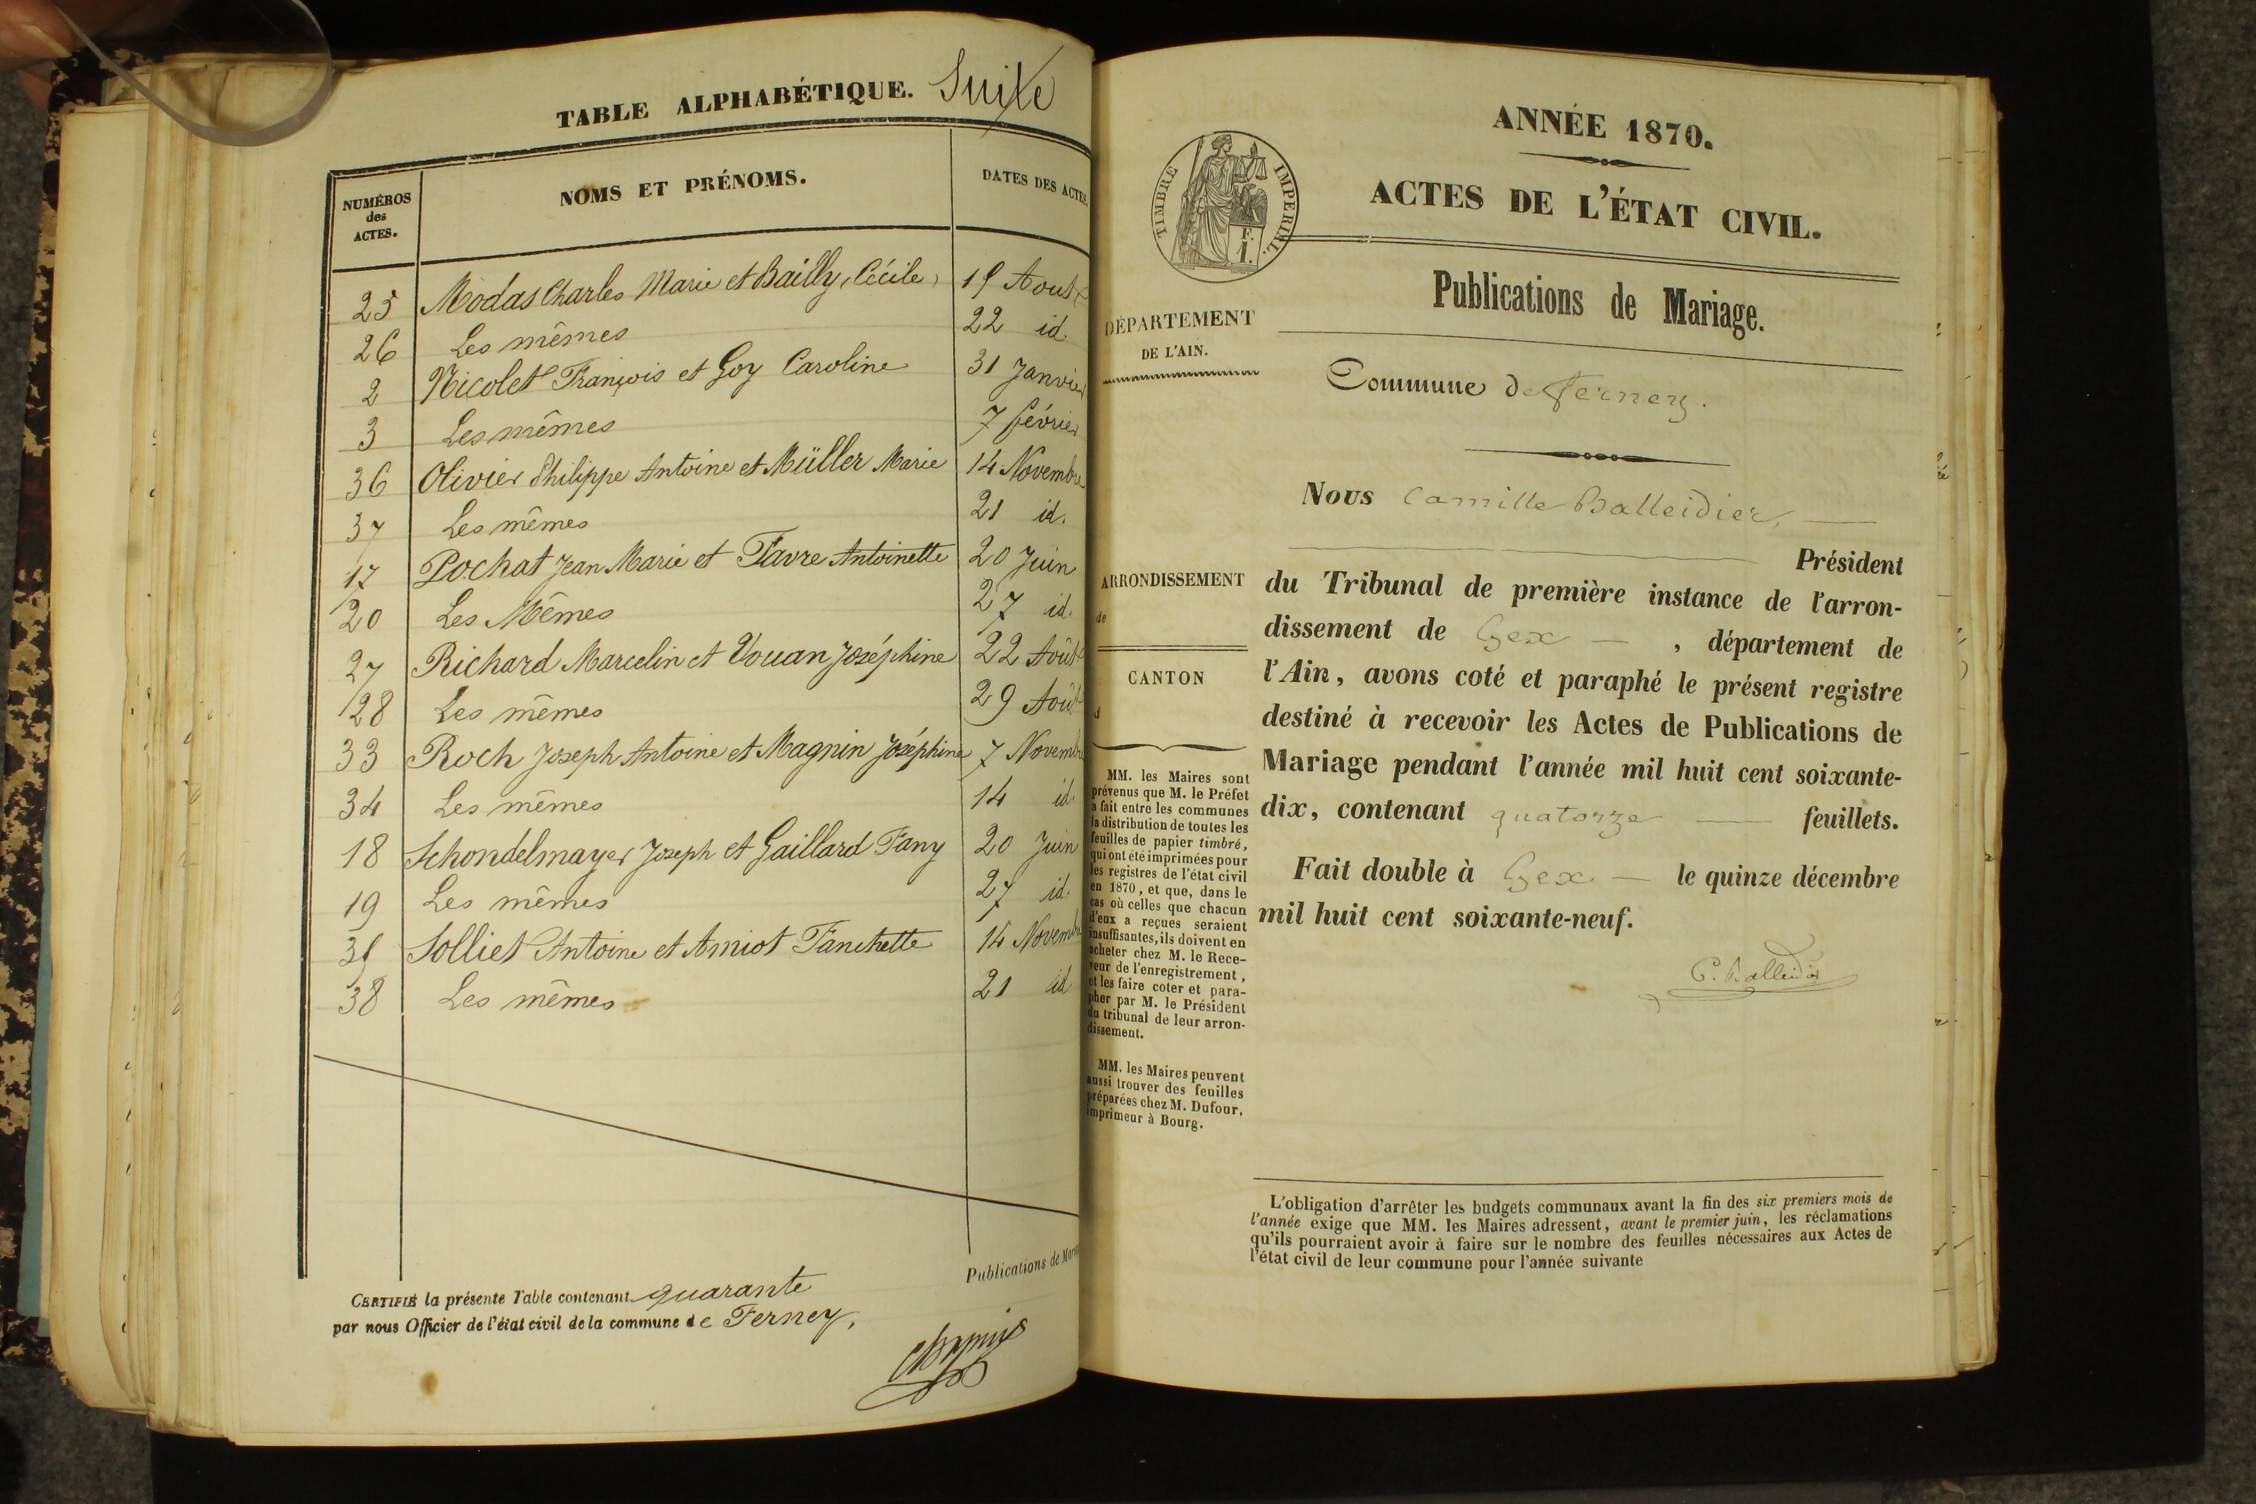 TABLE ALPHABÉTIQUE. Suite
NUMÉROS des ACTES. NOMS ET PRÉNOMS. DATES DES ACTES.
25 Modas Charles Marie et Bailly, Cécile, 15 Aout
26 Les mêmes 22 id.
2 Nicolet François et Goy Caroline 31 Janvier
3 Les mêmes 7 février
36 Olivier Philippe Antoine et Müller Marie 14 Novembre
37 Les mêmes 21 id.
17 Pochat Jean Marie et Favre Antoinette 20 Juin
20 Les Mêmes 27 id.
27 Richard Marcelin et Vouan Joséphine 22 Août
28 Les mêmes 29 Août
33 Roch Joseph Antoine et Magnin Joséphine 7 Novembre
34 Les mêmes 14 id.
18 Schondelmayer Joseph et Gaillard Fany 20 Juin
19 Les mêmes 27 id.
35 Solliet Antoine et Amiot Fanchette 14 Novembre
38 Les mêmes 21 id
Publications de
CERTIFIÉ la présente Table contenant quarante
par nous Officier de l'état civil de la commune de Ferney,
ANNÉE 1870.
ACTES DE L'ÉTAT CIVIL.
TIMBRE IMPERIAL.
F.
1.
Publications de Mariage.
DÉPARTEMENT
DE L'AIN.
Commune de Ferney.
Nous Camille Balleidier,
Président
du Tribunal de première instance de l'arron-
dissement de Gex , département de
l'Ain, avons coté et paraphé le présent registre
destiné à recevoir les Actes de Publications de
Mariage pendant l'année mil huit cent soixante-
dix, contenant quatorze feuillets.
Fait double à Gex le quinze décembre
mil huit cent soixante-neuf.
C. Balleidier
ARRONDISSEMENT
de
CANTON
MM. les Maires sont
prévenus que M. le Préfet
a fait entre les communes
la distribution de toutes les
feuilles de papier timbré,
qui ont été imprimées pour
les registres de l'état civil
en 1870, et que, dans le
cas où celles que chacun
d'eux a reçues seraient
insuffisantes, ils doivent en
acheter chez M. le Rece-
veur de l'enregistrement,
et les faire coter et para-
pher par M. le Président
du tribunal de leur arron-
dissement.
MM. les Maires peuvent
aussi trouver des feuilles
préparées chez M. Dufour,
imprimeur à Bourg.
L'obligation d'arrêter les budgets communaux avant la fin des six premiers mois de
l'année exige que MM. les Maires adressent, avant le premier juin, les réclamations
qu'ils pourraient avoir à faire sur le nombre des feuilles nécessaires aux Actes de
l'état civil de leur commune pour l'année suivante